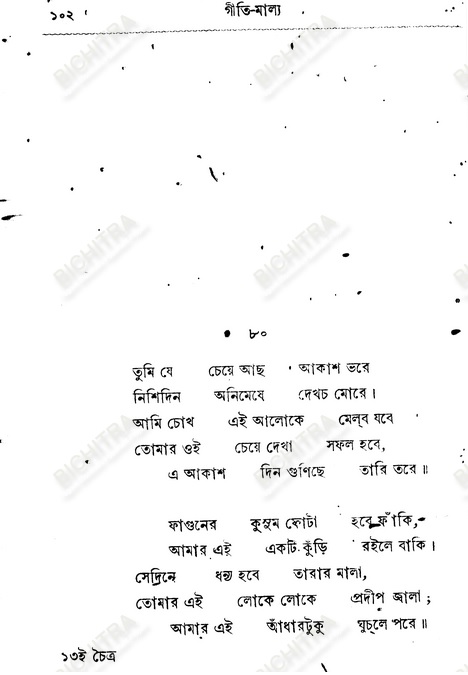 ১০২ গীতি-মাল্য
BICHITRA
৮০
তুমি যে চেয়ে আছ আকাশ ভরে
নিশিদিন অনিমেষে দেখচ মোরে।
আমি চোখ এই আলোকে মেল্‌ব যবে
তোমার ওই চেয়ে দেখা সফল হবে,
এ আকাশ দিন গুণিছে তারি তরে॥
ফাগুনের কুসুম ফোটা হবে ফাঁকি,
আমার এই একটি কুঁড়ি রইলে বাকি।
সেদিনে ধন্য হবে তারার মালা,
তোমার এই লোকে লোকে প্রদীপ জ্বালা;
আমার এই আঁধারটুকু ঘুচ্‌লে পরে॥
১৩ই চৈত্র